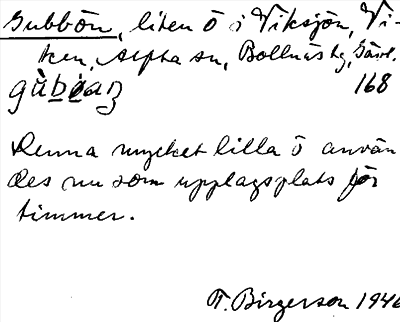 Gubbön, liten ö i Viksjön, Vi-
ken, Alfta sn, Bollnäs tg, Gävl.
168
Denna mycket lilla ö använ
des nu som upplagsplats för
timmer.
F. Birgerson 1946